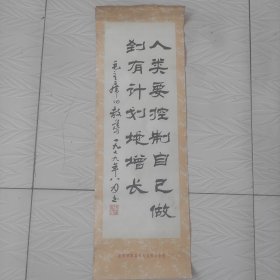 人类要控制自己做
到有计划地增长
毛主席的教导 一九七九年八月